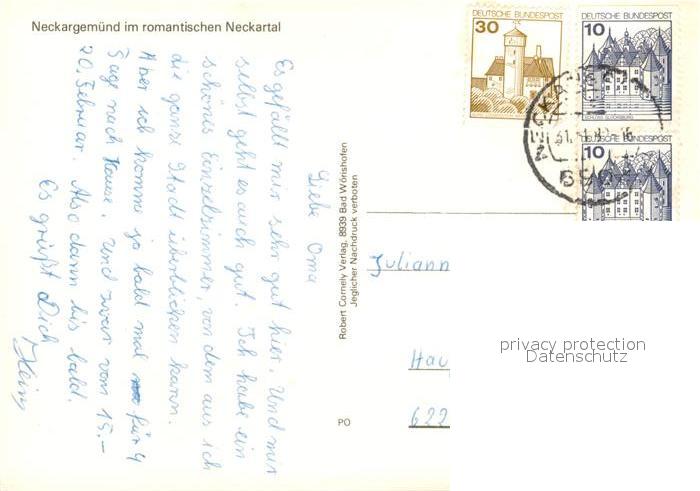 Neckargemünd im romantischen Neckartal
Liebe Oma
Es gefällt mir sehr gut hier. Und mir
selbst geht es auch gut. Ich habe ein
schönes Einzelzimmer, von dem aus ich
die ganze Stadt überblicken kann.
Aber ich komme ja bald mal für 4
Tage nach Hause. Und zwar vom 15.–
20. Februar. Also dann bis bald.
Es grüßt Dich
Heinz
Robert Cornely Verlag, 8939 Bad Wörishofen
Jeglicher Nachdruck verboten
PO
DEUTSCHE BUNDESPOST
30
DEUTSCHE BUNDESPOST
10
SCHLOSS GLÜCKSBURG
DEUTSCHE BUNDESPOST
10
Juliann
Hau
622
privacy protection
Datenschutz